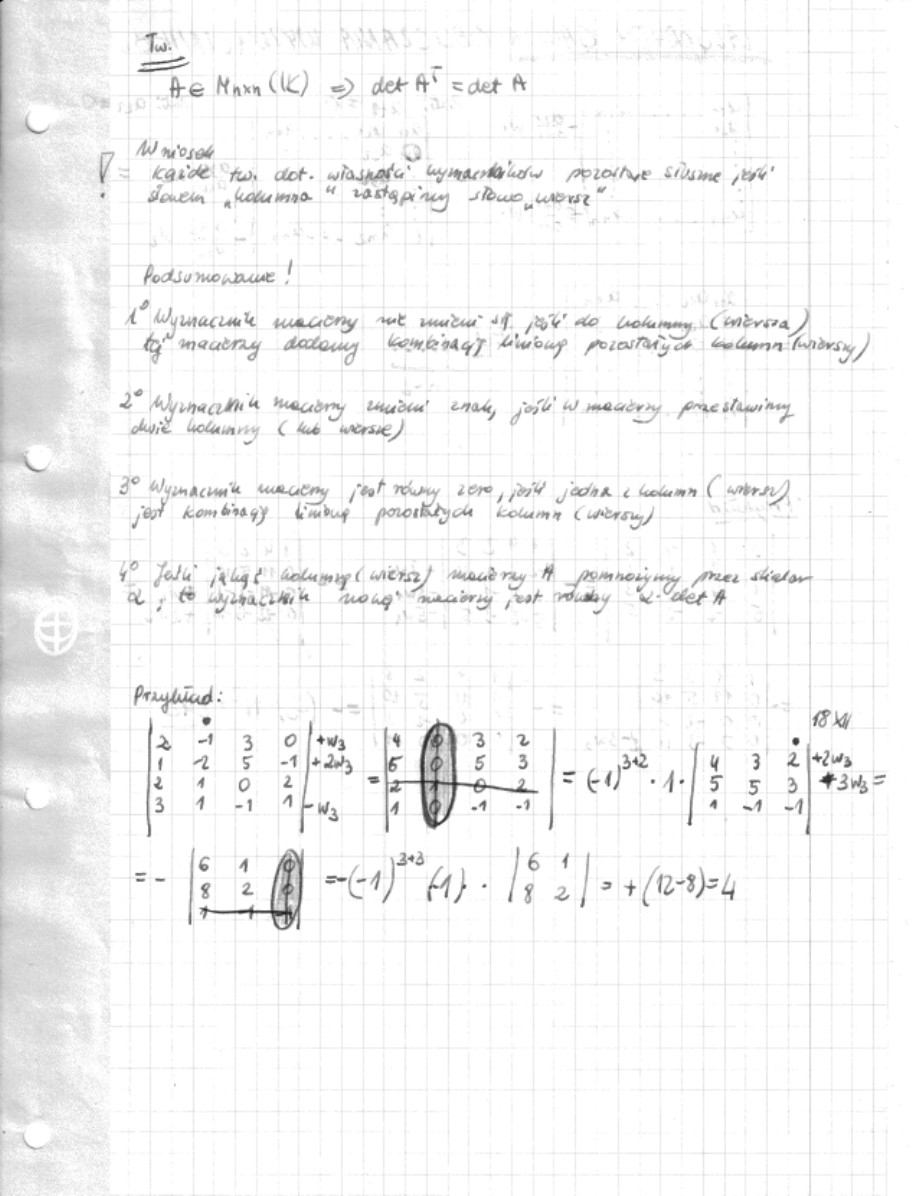 Tw.
A ∈ Mnxn (K) => det A^T = det A
Wniosek
! = każde tw. dot. własności wyznaczników pozostaje słuszne jeśli
słowem „kolumna" zastąpimy słowo „wiersz"
Podsumowanie!
1° Wyznacznik macierzy nie zmieni się jeśli do kolumny (wiersza)
tej macierzy dodamy kombinację liniową pozostałych kolumn (wierszy)
2° Wyznacznik macierzy zmieni znak, jeśli w macierzy przestawimy
dwie kolumny (lub wiersze)
3° Wyznacznik macierzy jest równy zero, jeśli jedna z kolumn (wierszy)
jest kombinacją liniową pozostałych kolumn (wierszy)
4° Jeśli jakąś kolumnę (wiersz) macierzy A pomnożymy przez skalar
α, to wyznacznik nowej macierzy jest równy α · det A
Przykład:
18 XII
| 2 -1 3 0 | +w3 | 4 0 3 2 |
| 1 -2 5 -1 | +2w3 | 5 0 5 3 | | 4 3 2 | +2w3
| 2 1 0 2 | = | 2 1 0 2 | = (-1)^3+2 · 1 · | 5 5 3 | +3w3 =
| 3 1 -1 1 | -w3 | 1 0 -1 -1 | | 1 -1 -1 |
| 6 1 0 |
= - | 8 2 0 | = -(-1)^3+3 (-1) · | 6 1 | = + (12-8) = 4
| 1 -1 -1 | | 8 2 |